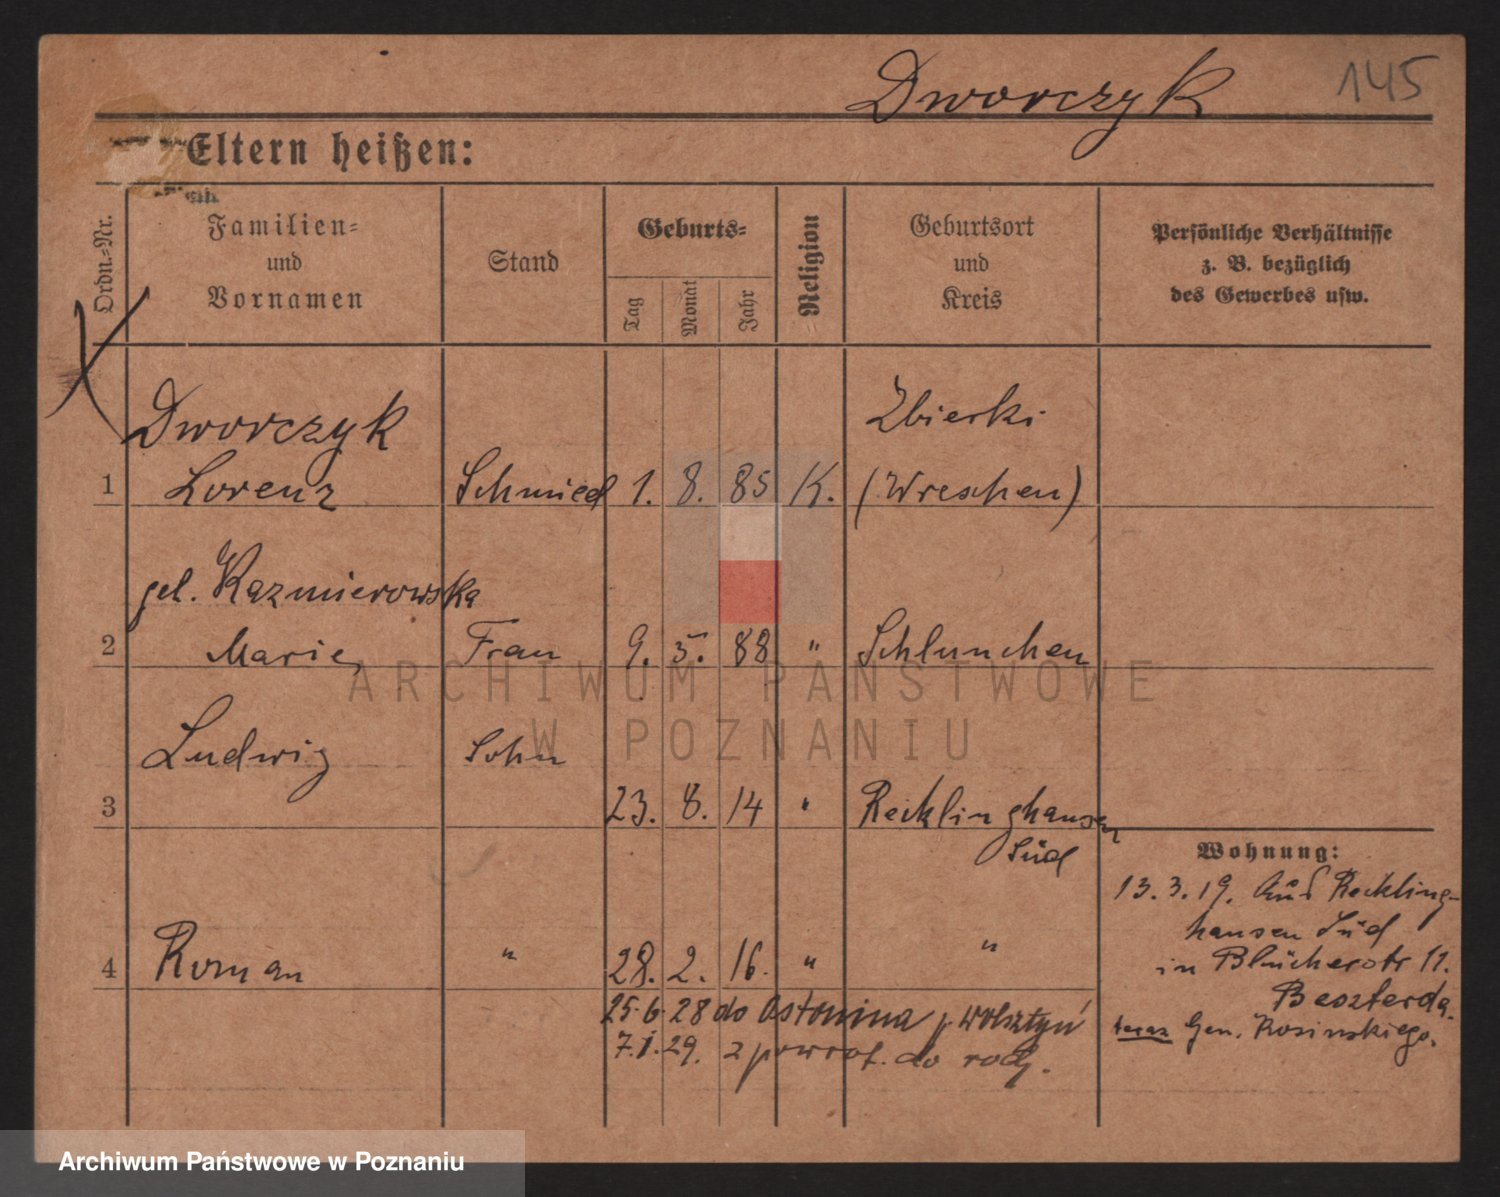 Dworczyk 145
Eltern heißen:
Ordn.=Nr.
Familien=
und
Vornamen
Stand
Geburts=
Tag
Monat
Jahr
Religion
Geburtsort
und
Kreis
Persönliche Verhältnisse
z. B. bezüglich
des Gewerbes usw.
X
Dworczyk Zbierki
1 Lorenz Schmied 1. 8. 85 K. (Wreschen)
geb. Kazmierowska
2 Marie, Frau 9. 5. 88 " Schlunchen
Ludwig Sohn
3 23. 8. 14 " Recklinghausen
Süd
4 Roman " 28. 2. 16. " "
25.6.28 do Ostonina p. Wolsztyń
7.1.29. z powrot. do rodz.
Wohnung:
13.3.19. Aus Reckling-
hausen Süd
in Blücherstr 11.
Beszterda.
teraz Gen. Kosinskiego.
ARCHIWUM PAŃSTWOWE
W POZNANIU
Archiwum Państwowe w Poznaniu